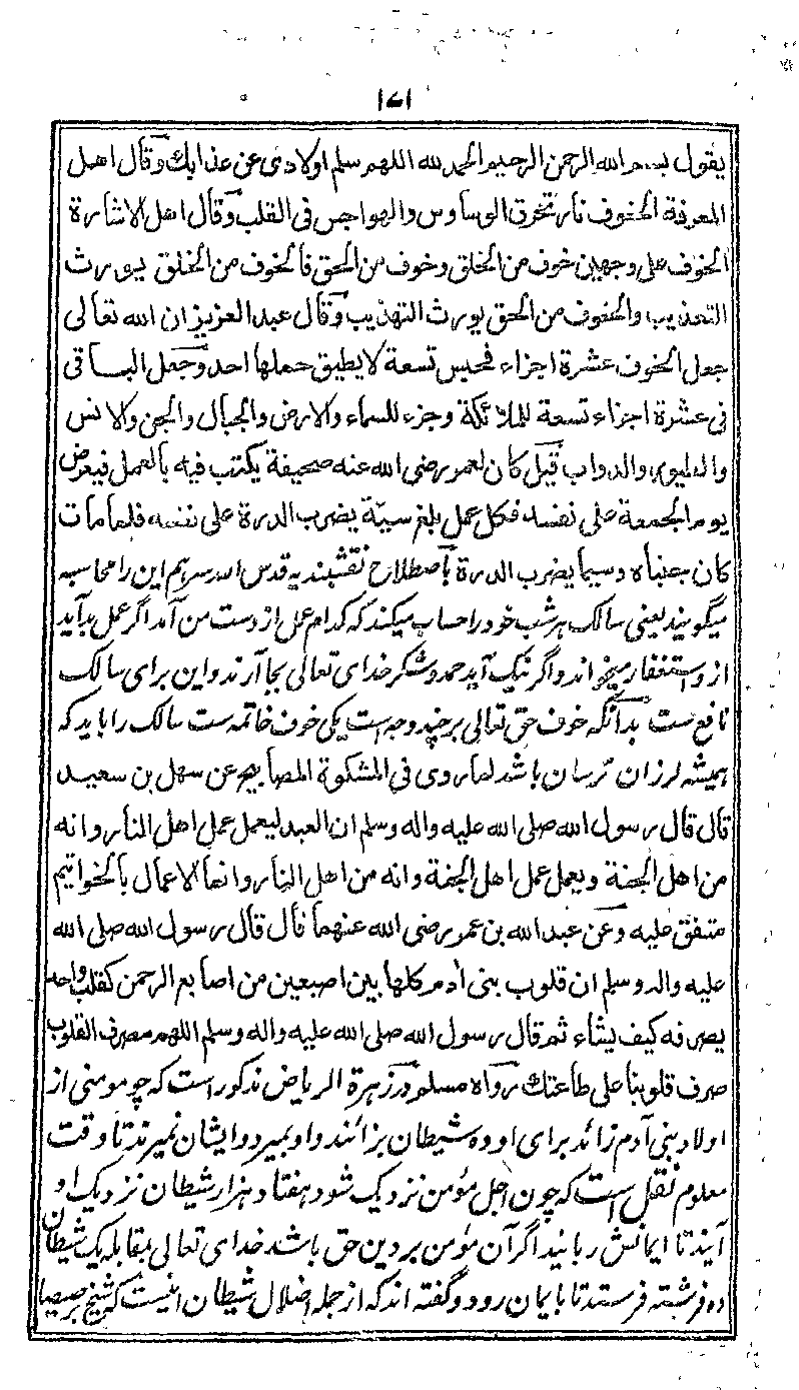 ١٧١
يقول بسم الله الرحمن الرحيم الحمد لله اللهم سلم اولادى عن عذابك وقال اهل
المعرفة الخوف نار تحرق الوساوس والهواجس فى القلب وقال اهل الاشارة
الخوف على وجهين خوف من الخلق وخوف من الحق فالخوف من الخلق يورث
التعذيب والخوف من الحق يورث التهذيب وقال عبد العزيز ان الله تعالى
جعل الخوف عشرة اجزاء فحبس تسعة لا يطيق حملها احد وجعل الباقى
فى عشرة اجزاء تسعة للملائكة وجزء للسماء والارض والجبال والجن والانس
والطيور والدواب قيل كان لعمر رضى الله عنه صحيفة يكتب فيه بالعمل فيعرض
يوم الجمعة على نفسه فكل عمل بلغ سيئة يضرب الدرة على نفسه فلما مات
كان جنباه وسيما يضرب الدرة باصطلاح نقشبنديه قدس الله سرهم اين را محاسبه
ميگويند يعنى سالك هر شب خود را حساب ميكند كه كدام عمل از دست من آمد اگر عمل بد آيد
از و استغفار ميخواند و اگر نيك آيد حمد و شكر خداى تعالى بجا آرند و اين براى سالك
نافع ست بدانكه خوف حق تعالى بر چند وجه است يكى خوف خاتمه ست سالك را بايد كه
هميشه لرزان ترسان باشد لما روى فى المشكوة المصابيح عن سهل بن سعيد
قال قال رسول الله صلى الله عليه واله وسلم ان العبد ليعمل عمل اهل النار وانه
من اهل الجنة ويعمل عمل اهل الجنة وانه من اهل النار وانما الاعمال بالخواتيم
متفق عليه وعن عبد الله بن عمر رضى الله عنهما قال قال رسول الله صلى الله
عليه واله وسلم ان قلوب بنى ادم كلها بين اصبعين من اصابع الرحمن كقلب واحد
يصرفه كيف يشاء ثم قال رسول الله صلى الله عليه واله وسلم اللهم مصرف القلوب
صرف قلوبنا على طاعتك رواه مسلم در زهرة الرياض مذكور است كه چو مومنى از
اولاد بنى آدم زائد براى او ده شيطان بزائند و او بميرد و ايشان نميرند تا وقت
معلوم نقل است كه چون اجل مؤمن نزديك شود هفتاد هزار شيطان نزديك او
آيند تا ايمانش ربايند اگر آن مؤمن بر دين حق باشد خداى تعالى بمقابله يك شيطان
ده فرشته فرستد تا با ايمان رود و گفته اند كه از جمله اضلال شيطان اينست كه شيخ برصيصا